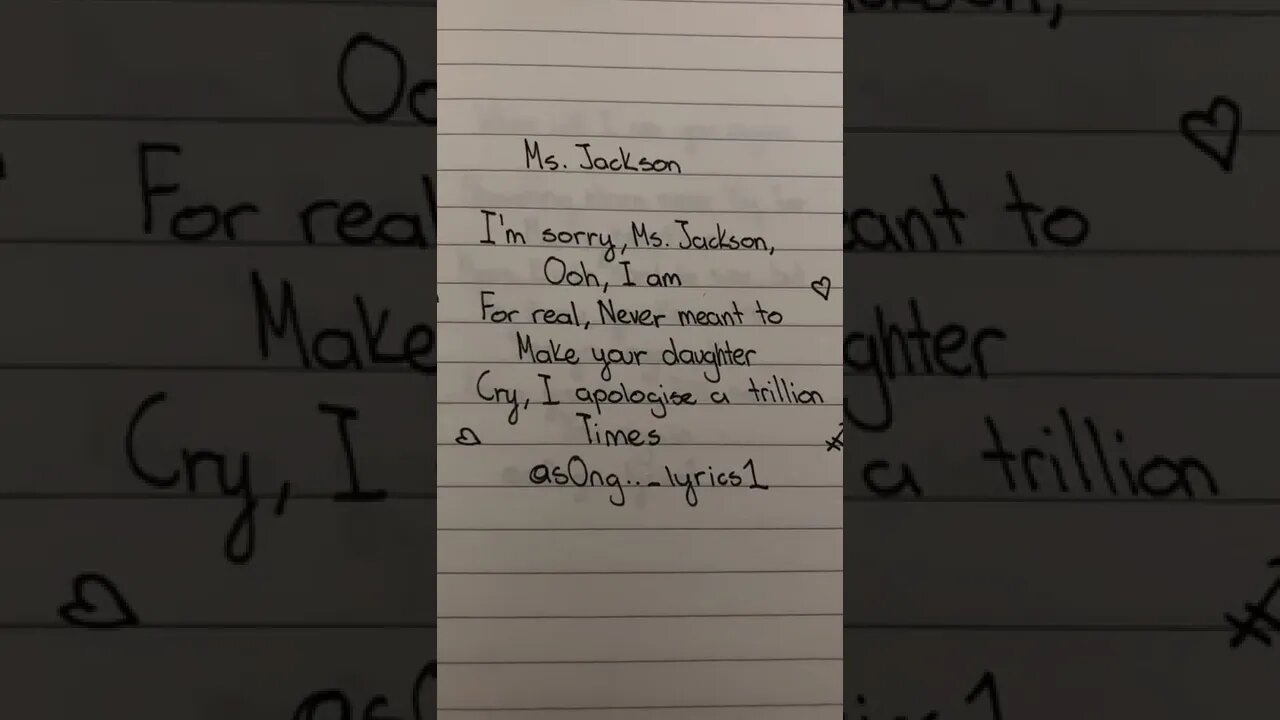 Ms. Jackson
I'm sorry, Ms. Jackson,
Ooh, I am
For real, Never meant to
Make your daughter
Cry, I apologise a trillion
Times
@s0ng.._lyrics1